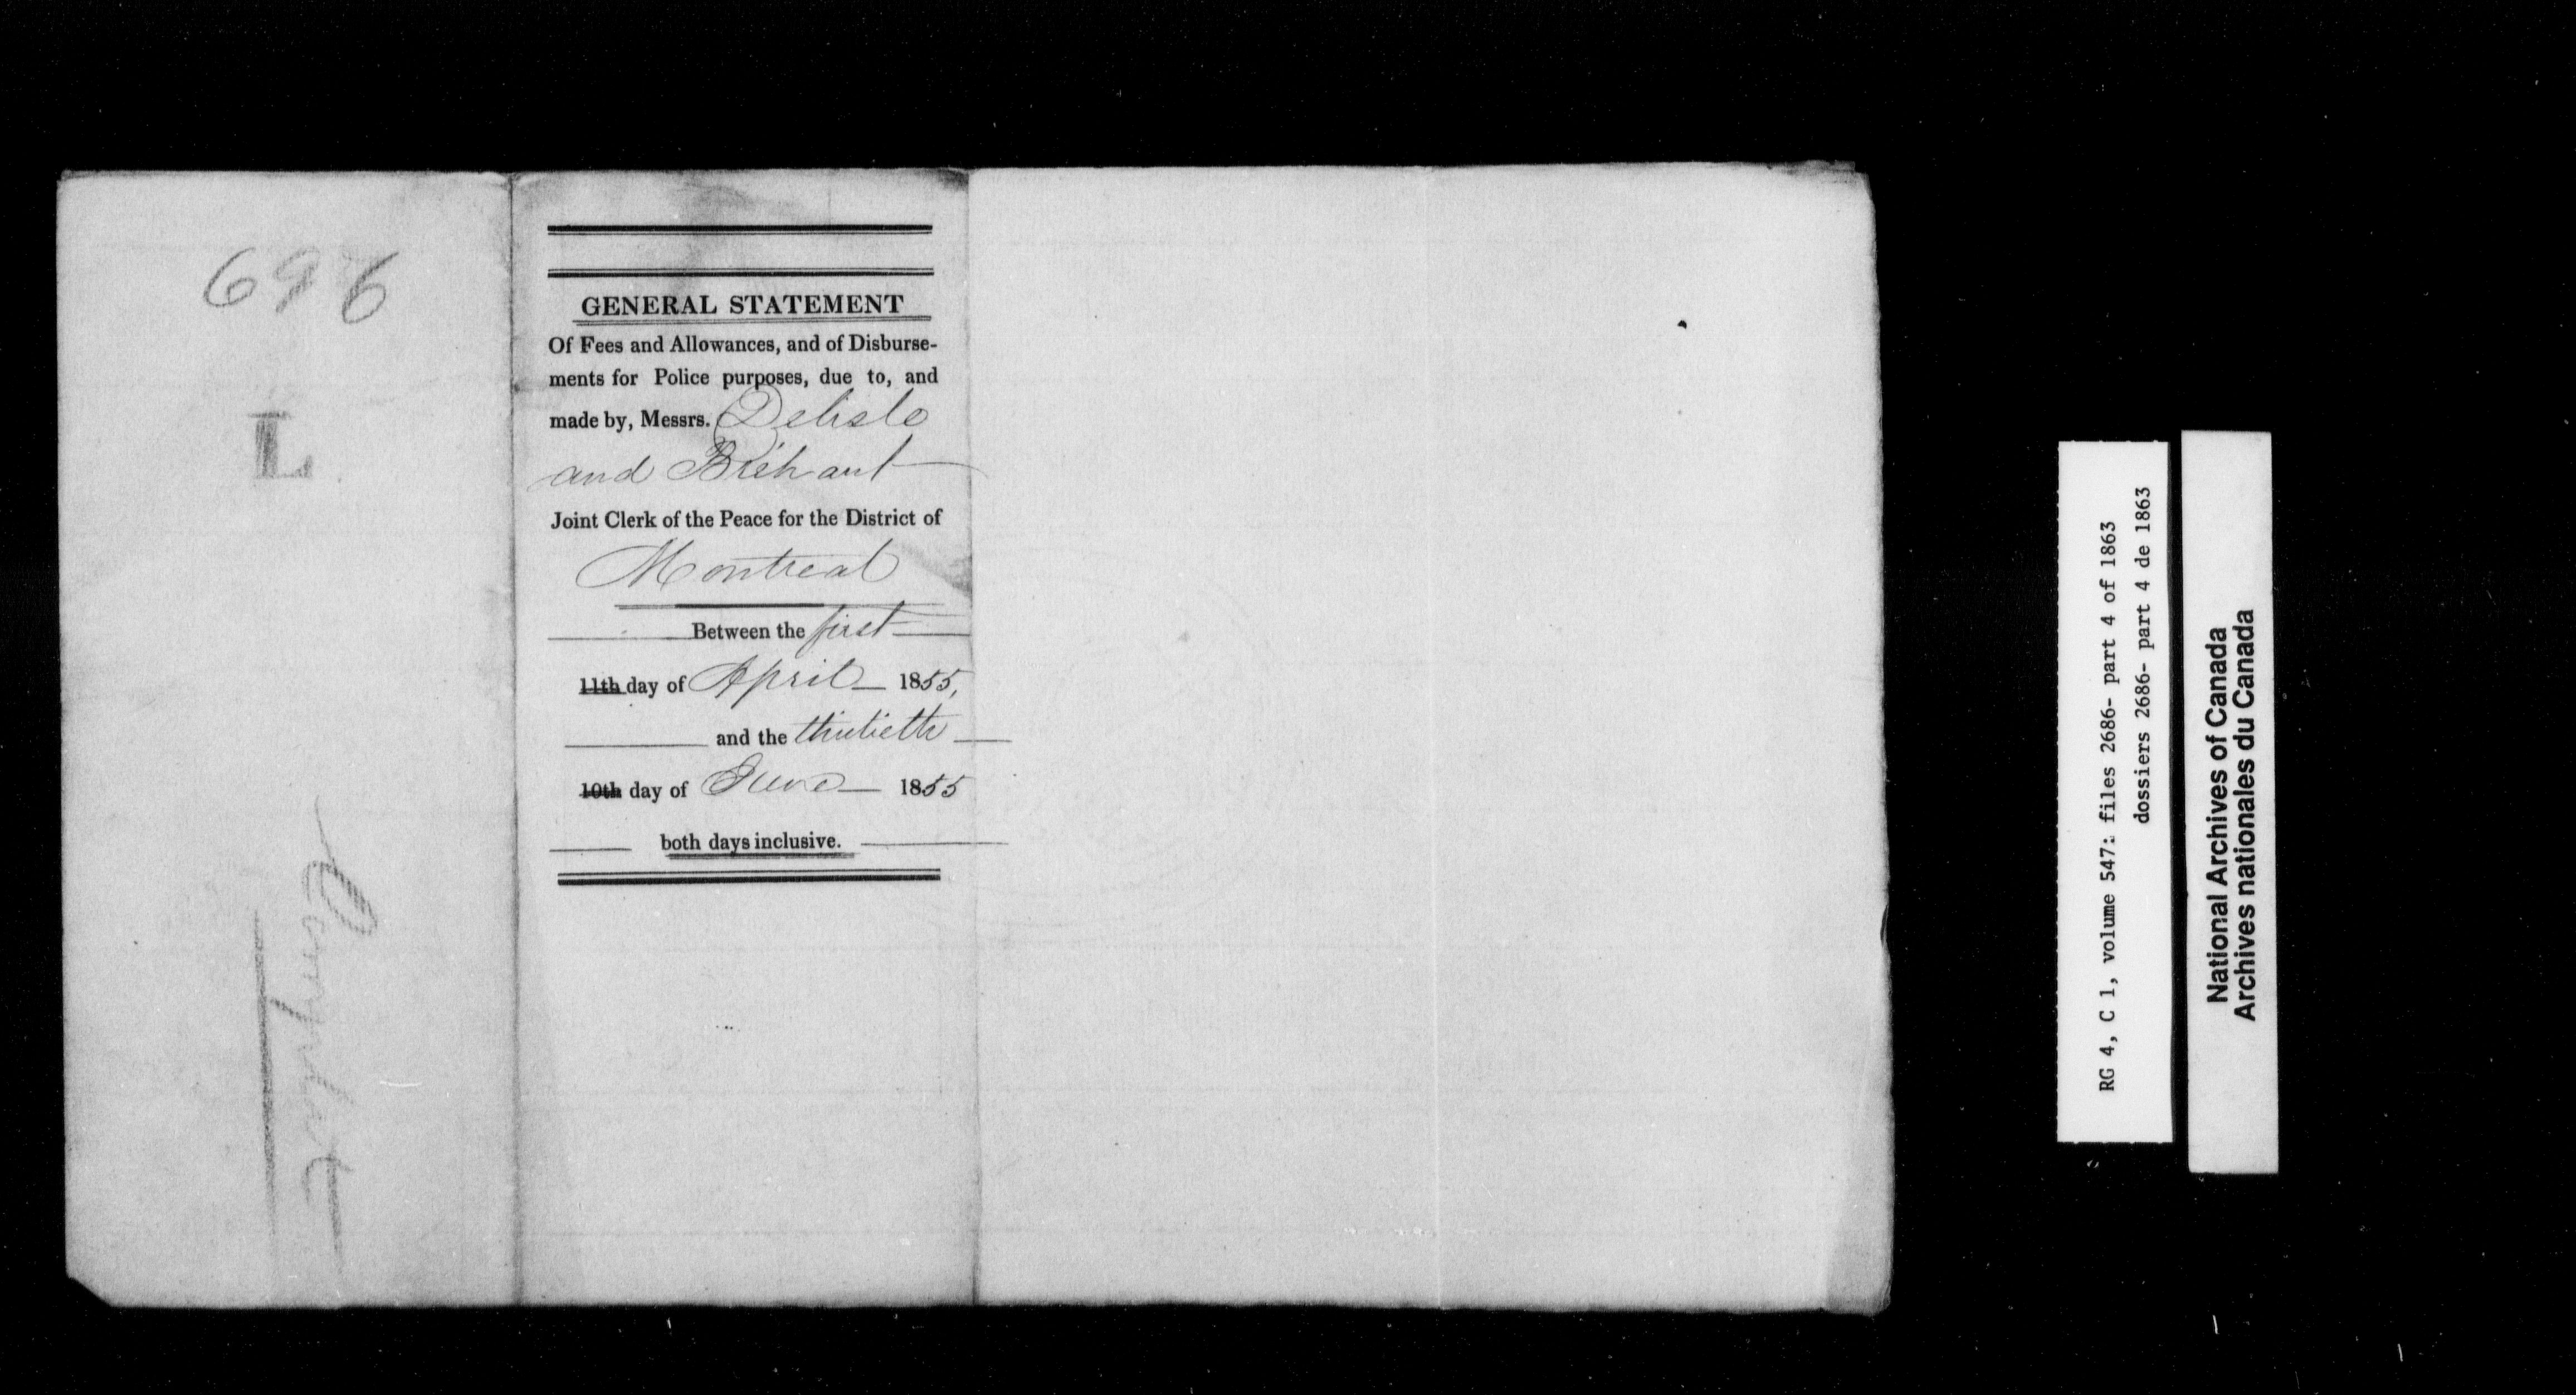 696
L
Complet
GENERAL STATEMENT
Of Fees and Allowances, and of Disburse-
ments for Police purposes, due to, and
made by, Messrs. Delisle
and Bréhaut
Joint Clerk of the Peace for the District of
Montreal
Between the first
11th day of April 1855,
and the thirtieth
10th day of June 1855
both days inclusive.
RG 4, C 1, volume 547: files 2686- part 4 of 1863
dossiers 2686- part 4 de 1863
National Archives of Canada
Archives nationales du Canada